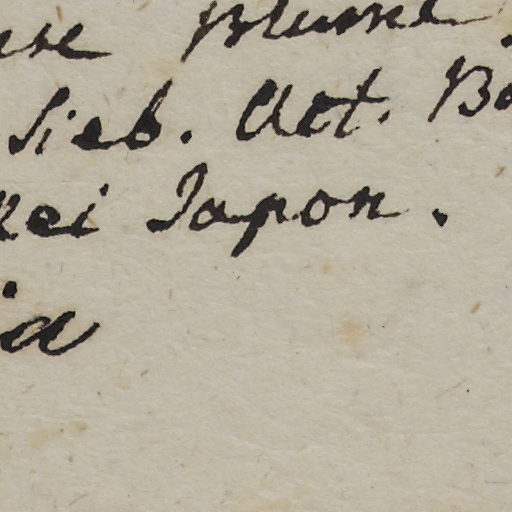 Blume
Sieb. Act. Ba
kei Japon.
ia